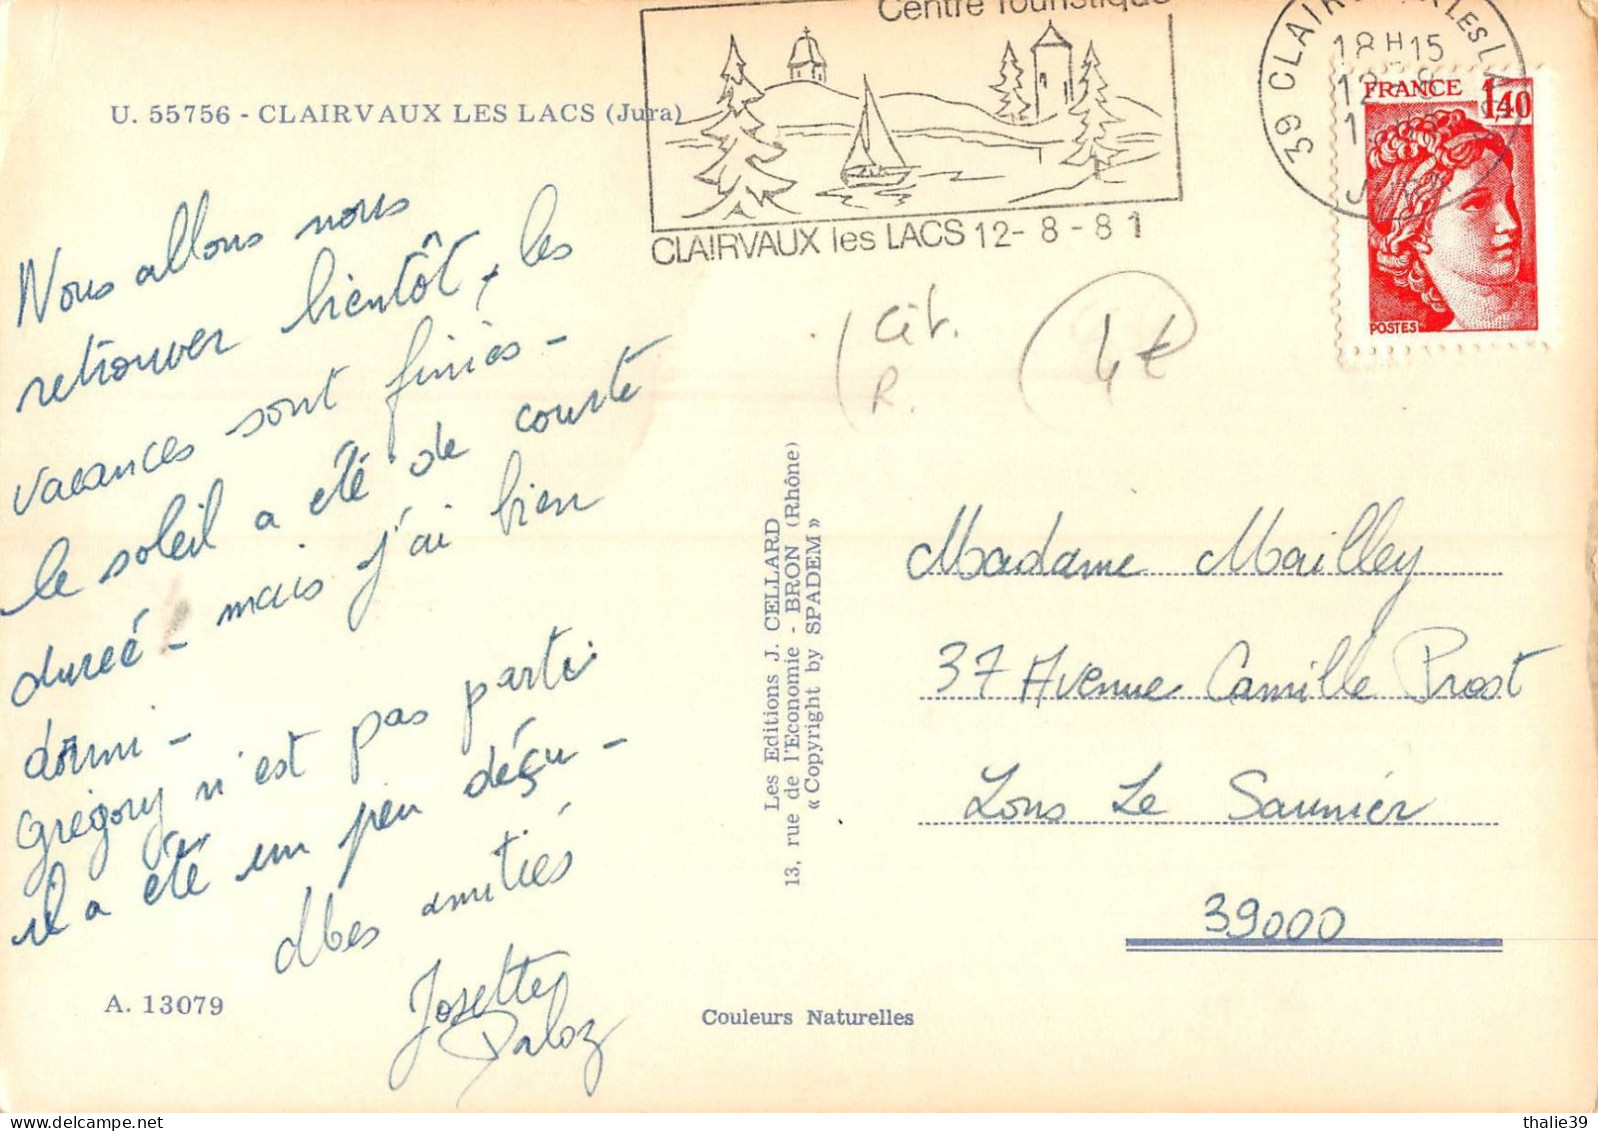 U. 55756 - CLAIRVAUX LES LACS (Jura)
Centre Touristique
CLAIRVAUX les LACS 12-8-81
39 CLAIRVAUX LES L
18H15
12
JURA
FRANCE
1,40
POSTES
Nous allons nous
retrouver bientôt, les
vacances sont finies -
le soleil a été de courte
durée - mais j'ai bien
dormi -
Grégory n'est pas parti
il a été un peu déçu -
Mes amitiés
Josette
Paloz
4€
R.
Les Editions J. CELLARD
13, rue de l'Economie - BRON (Rhône)
« Copyright by SPADEM »
Madame Mailley
37 Avenue Camille Prost
Lons Le Saunier
39000
A. 13079
Couleurs Naturelles
thalie39